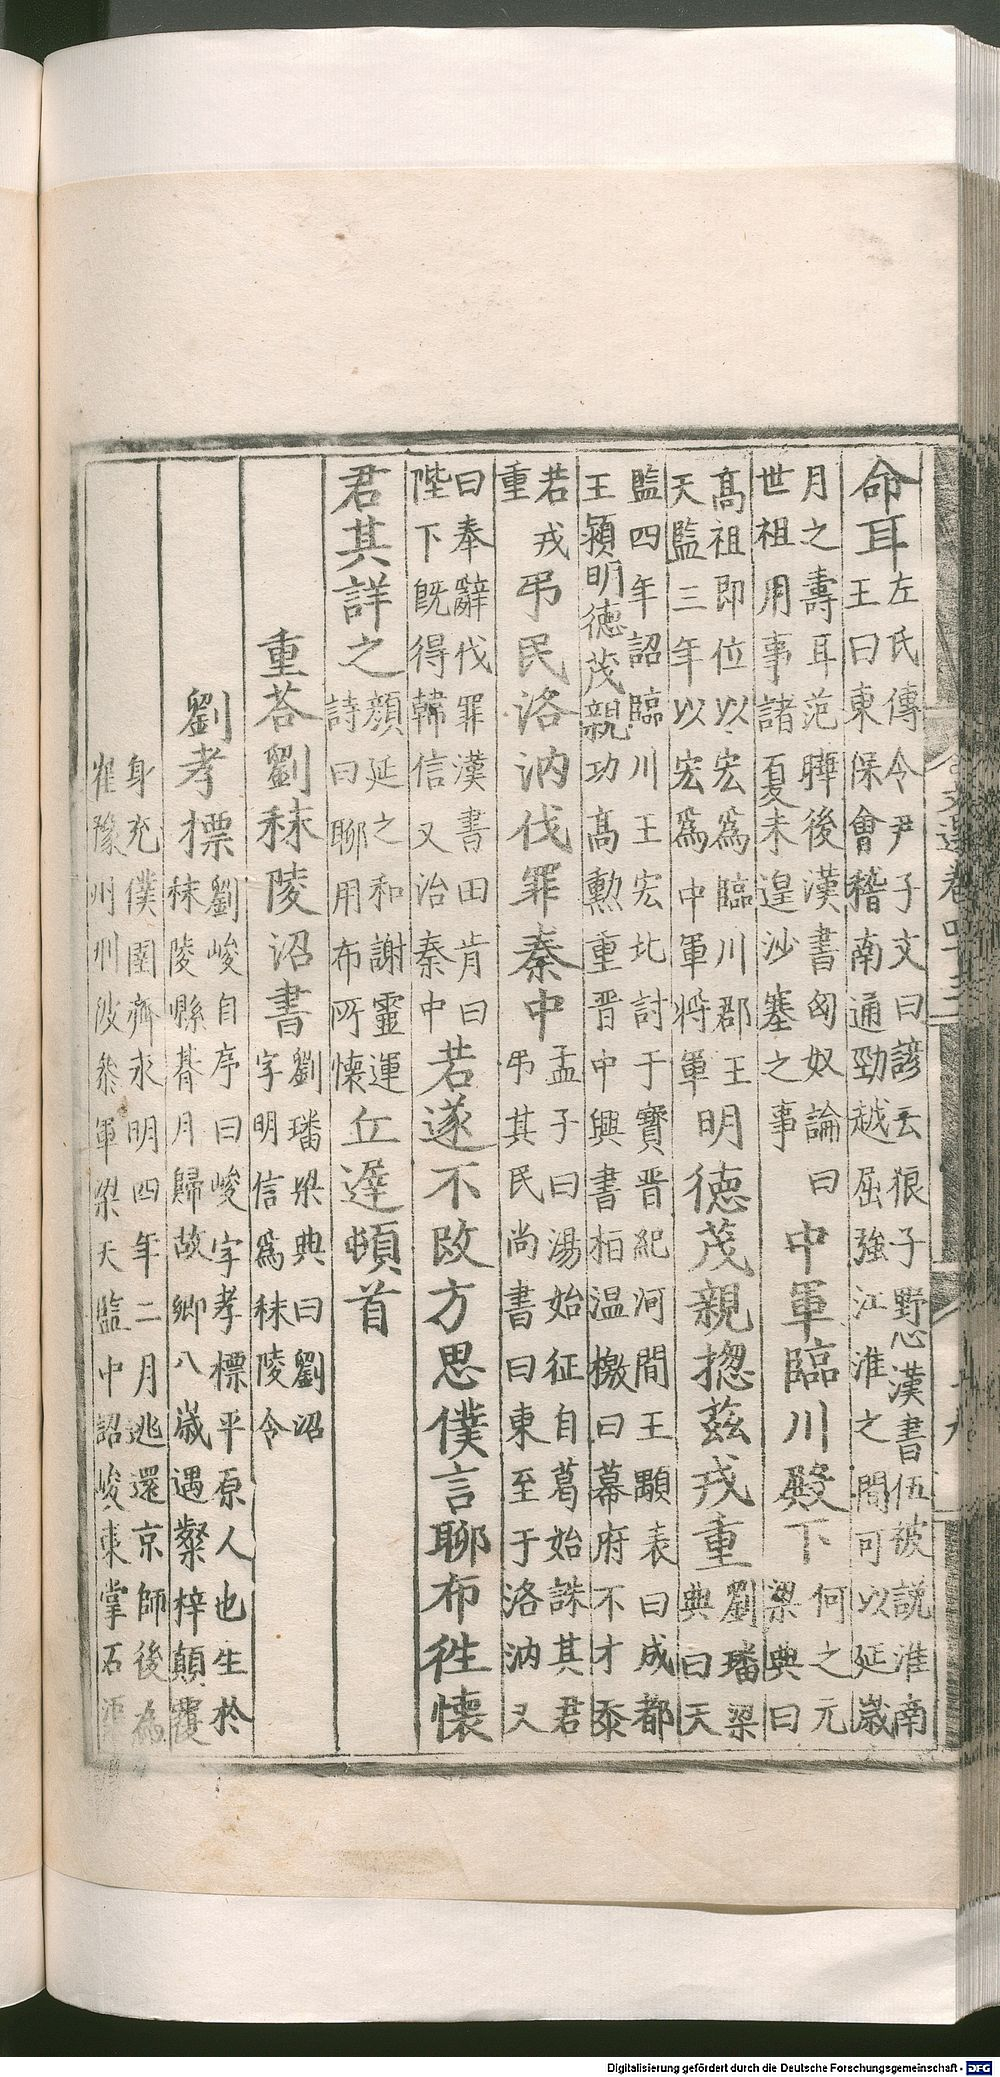 命耳左氏傳令尹子文曰諺云狼子野心漢書伍被說淮南王曰東保會稽南通勁越屈強江淮之間可以延歲
月之壽耳范曄後漢書匈奴論曰世祖用事諸夏未遑沙塞之事中軍臨川殿下何之元梁典曰
高祖即位以宏爲臨川郡王天監三年以宏爲中軍將軍明德茂親揔茲戎重劉璠梁典曰天
監四年詔臨川王宏北討于寶晉紀河間王顒表曰成都王潁明德茂親功高勳重晉中興書栢温檄曰幕府不才忝
若戎重弔民洛汭伐罪秦中孟子曰湯始征自葛始誅其君弔其民尚書曰東至于洛汭又
曰奉辭伐罪漢書田肯曰陛下旣得韓信又治秦中若遂不改方思僕言聊布徃懷
君其詳之顔延之和謝靈運詩曰聊用布所懷丘遲頓首
重荅劉秣陵沼書劉璠梁典曰劉沼字明信爲秣陵令
劉孝標劉峻自序曰峻字孝標平原人也生於秣陵縣朞月歸故鄉八歲遇桑梓顛覆
身充僕圉齊永明四年二月逃還京師後為崔豫州刑獄參軍梁天監中詔峻東掌石渠
文選卷四十三
Digitalisierung gefördert durch die Deutsche Forschungsgemeinschaft - DFG